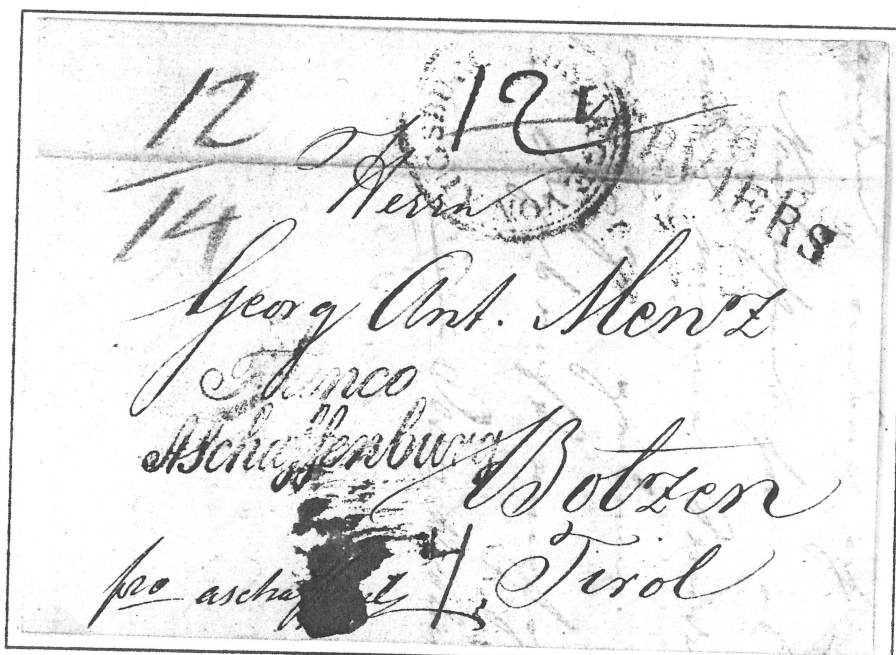 12
14
12
VERVIERS
Herrn
Georg Ant. Menz
Franco
Aschaffenburg
Botzen
Tirol
pro